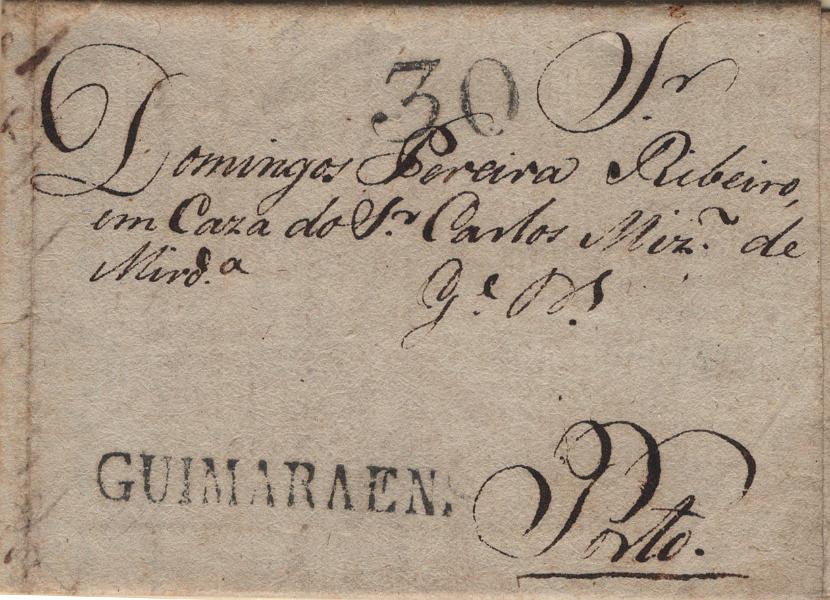 30 Sr
Domingos Pereira Ribeiro,
em Caza do Sr Carlos Miz.~ de
Mird.a
G.e D.s
GUIMARAENS
Porto.